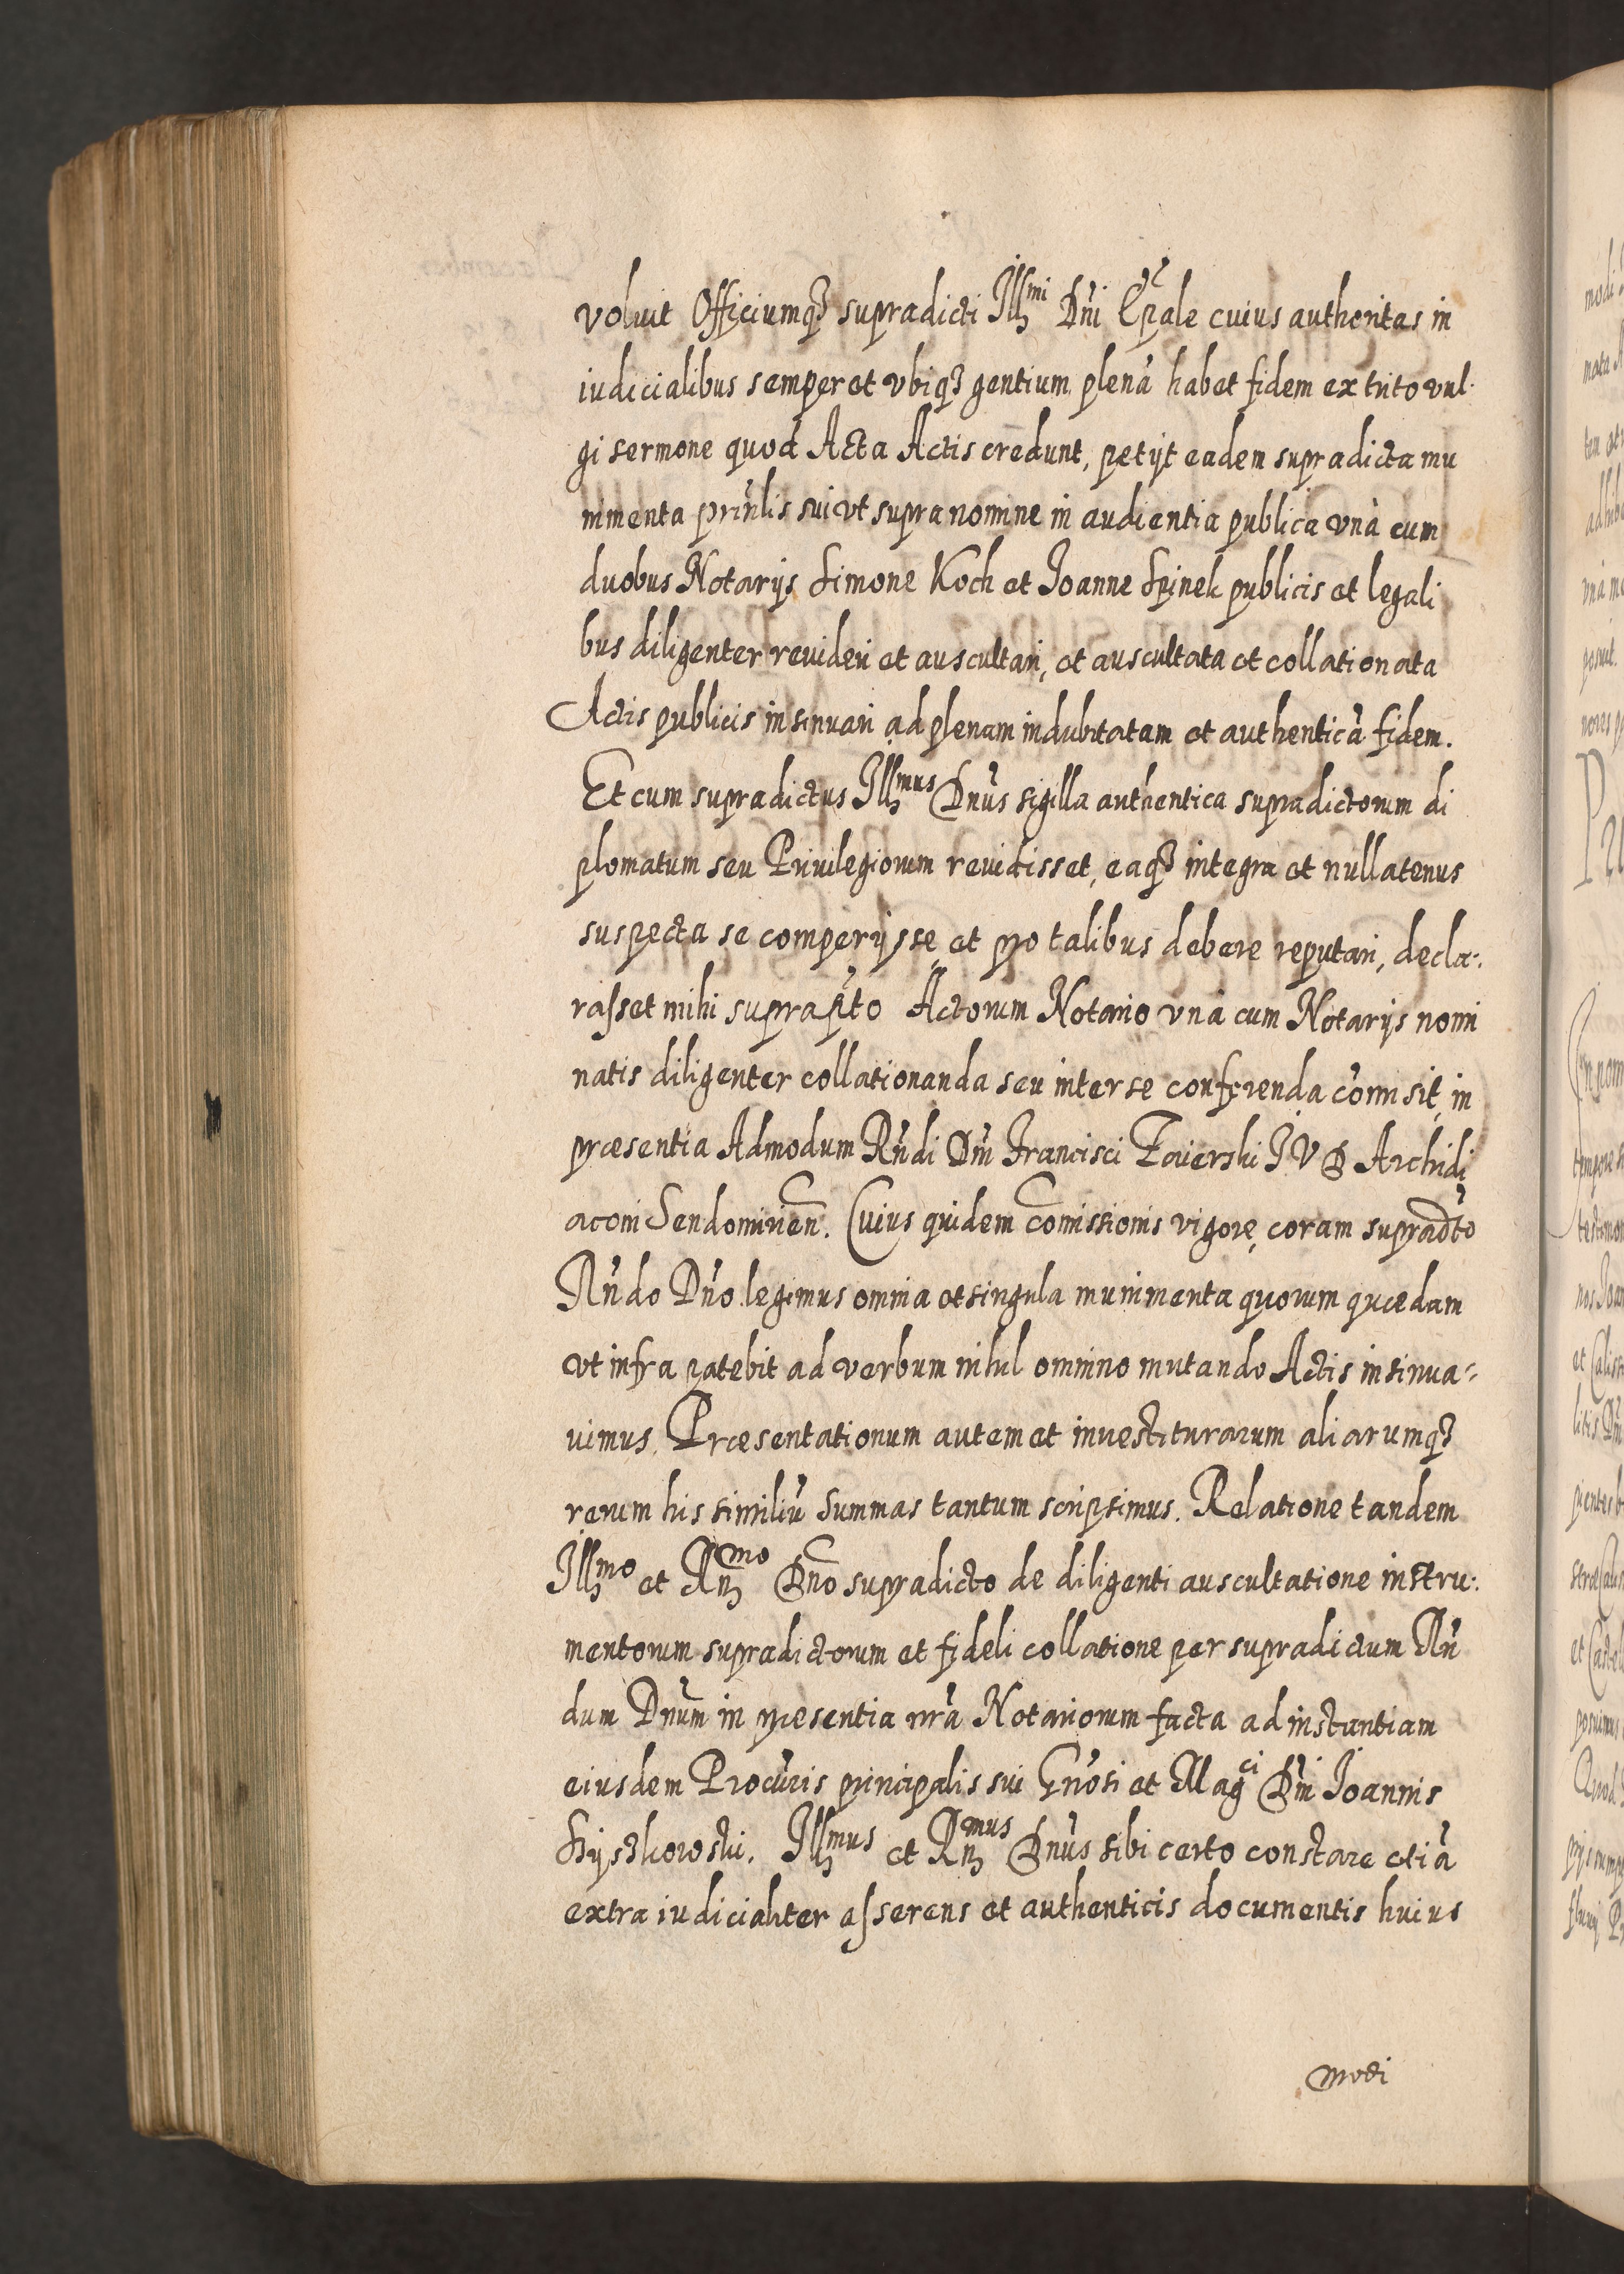 voluit Officiumq3 supradicti Illmi Dni Epale cuius authoritas in
iudicialibus semper et vbiq3 gentium plenā habet fidem ex trito vul-
gi sermone quod Acta Actis credunt, petijt eadem supradicta mu
nimenta prinlis sui vt supra nomine in audientia publica vnà cum
duobus Notarijs Simone Koch et Joanne Spinek publicis et legali
bus diligenter revideri et auscultari, et auscultata et collationata
Actis publicis insinuari ad plenam indubitatam et authenticā fidem.
Et cum supradictus Illmus Dnus sigilla authentica supradictorum di
plomatum seu Priuilegiorum reuidisset, eaq3 integra et nullatenus
suspecta se comperijsse, et pro talibus debere reputari, decla-
rasset mihi suprapto Actorum Notario vnà cum Notarijs nomi
natis diligenter collationanda seu inter se conferenda cōmisit, in
præsentia Admodum Rndi Dni Francisci Zaierski I V D Archidi
aconi Sendomirien. Cuius quidem Comissionis vigore, coram supradto
Rndo Dno legimus omnia et singula munimenta quorum quædam
vt infra patebit ad verbum nihil omnino mutando Actis insinua-
uimus. Præsentationum autem et inuestiturarum aliarumq3
rerum his similiū Summas tantum scripsimus. Relatione tandem
Illmo et Rnmo Dno supradicto de diligenti auscultatione instru-
mentorum supradictorum et fideli collatione per supradictum Rn
dum Dnum in præsentia nrā Notariorum facta ad instantiam
eiusdem Procuris principalis sui Gnosi et Magci Dni Joannis
Illmus et Rnmus Dnus sibi certo constare etiā
extra iudicialiter asserens et authenticis documentis huius
modi